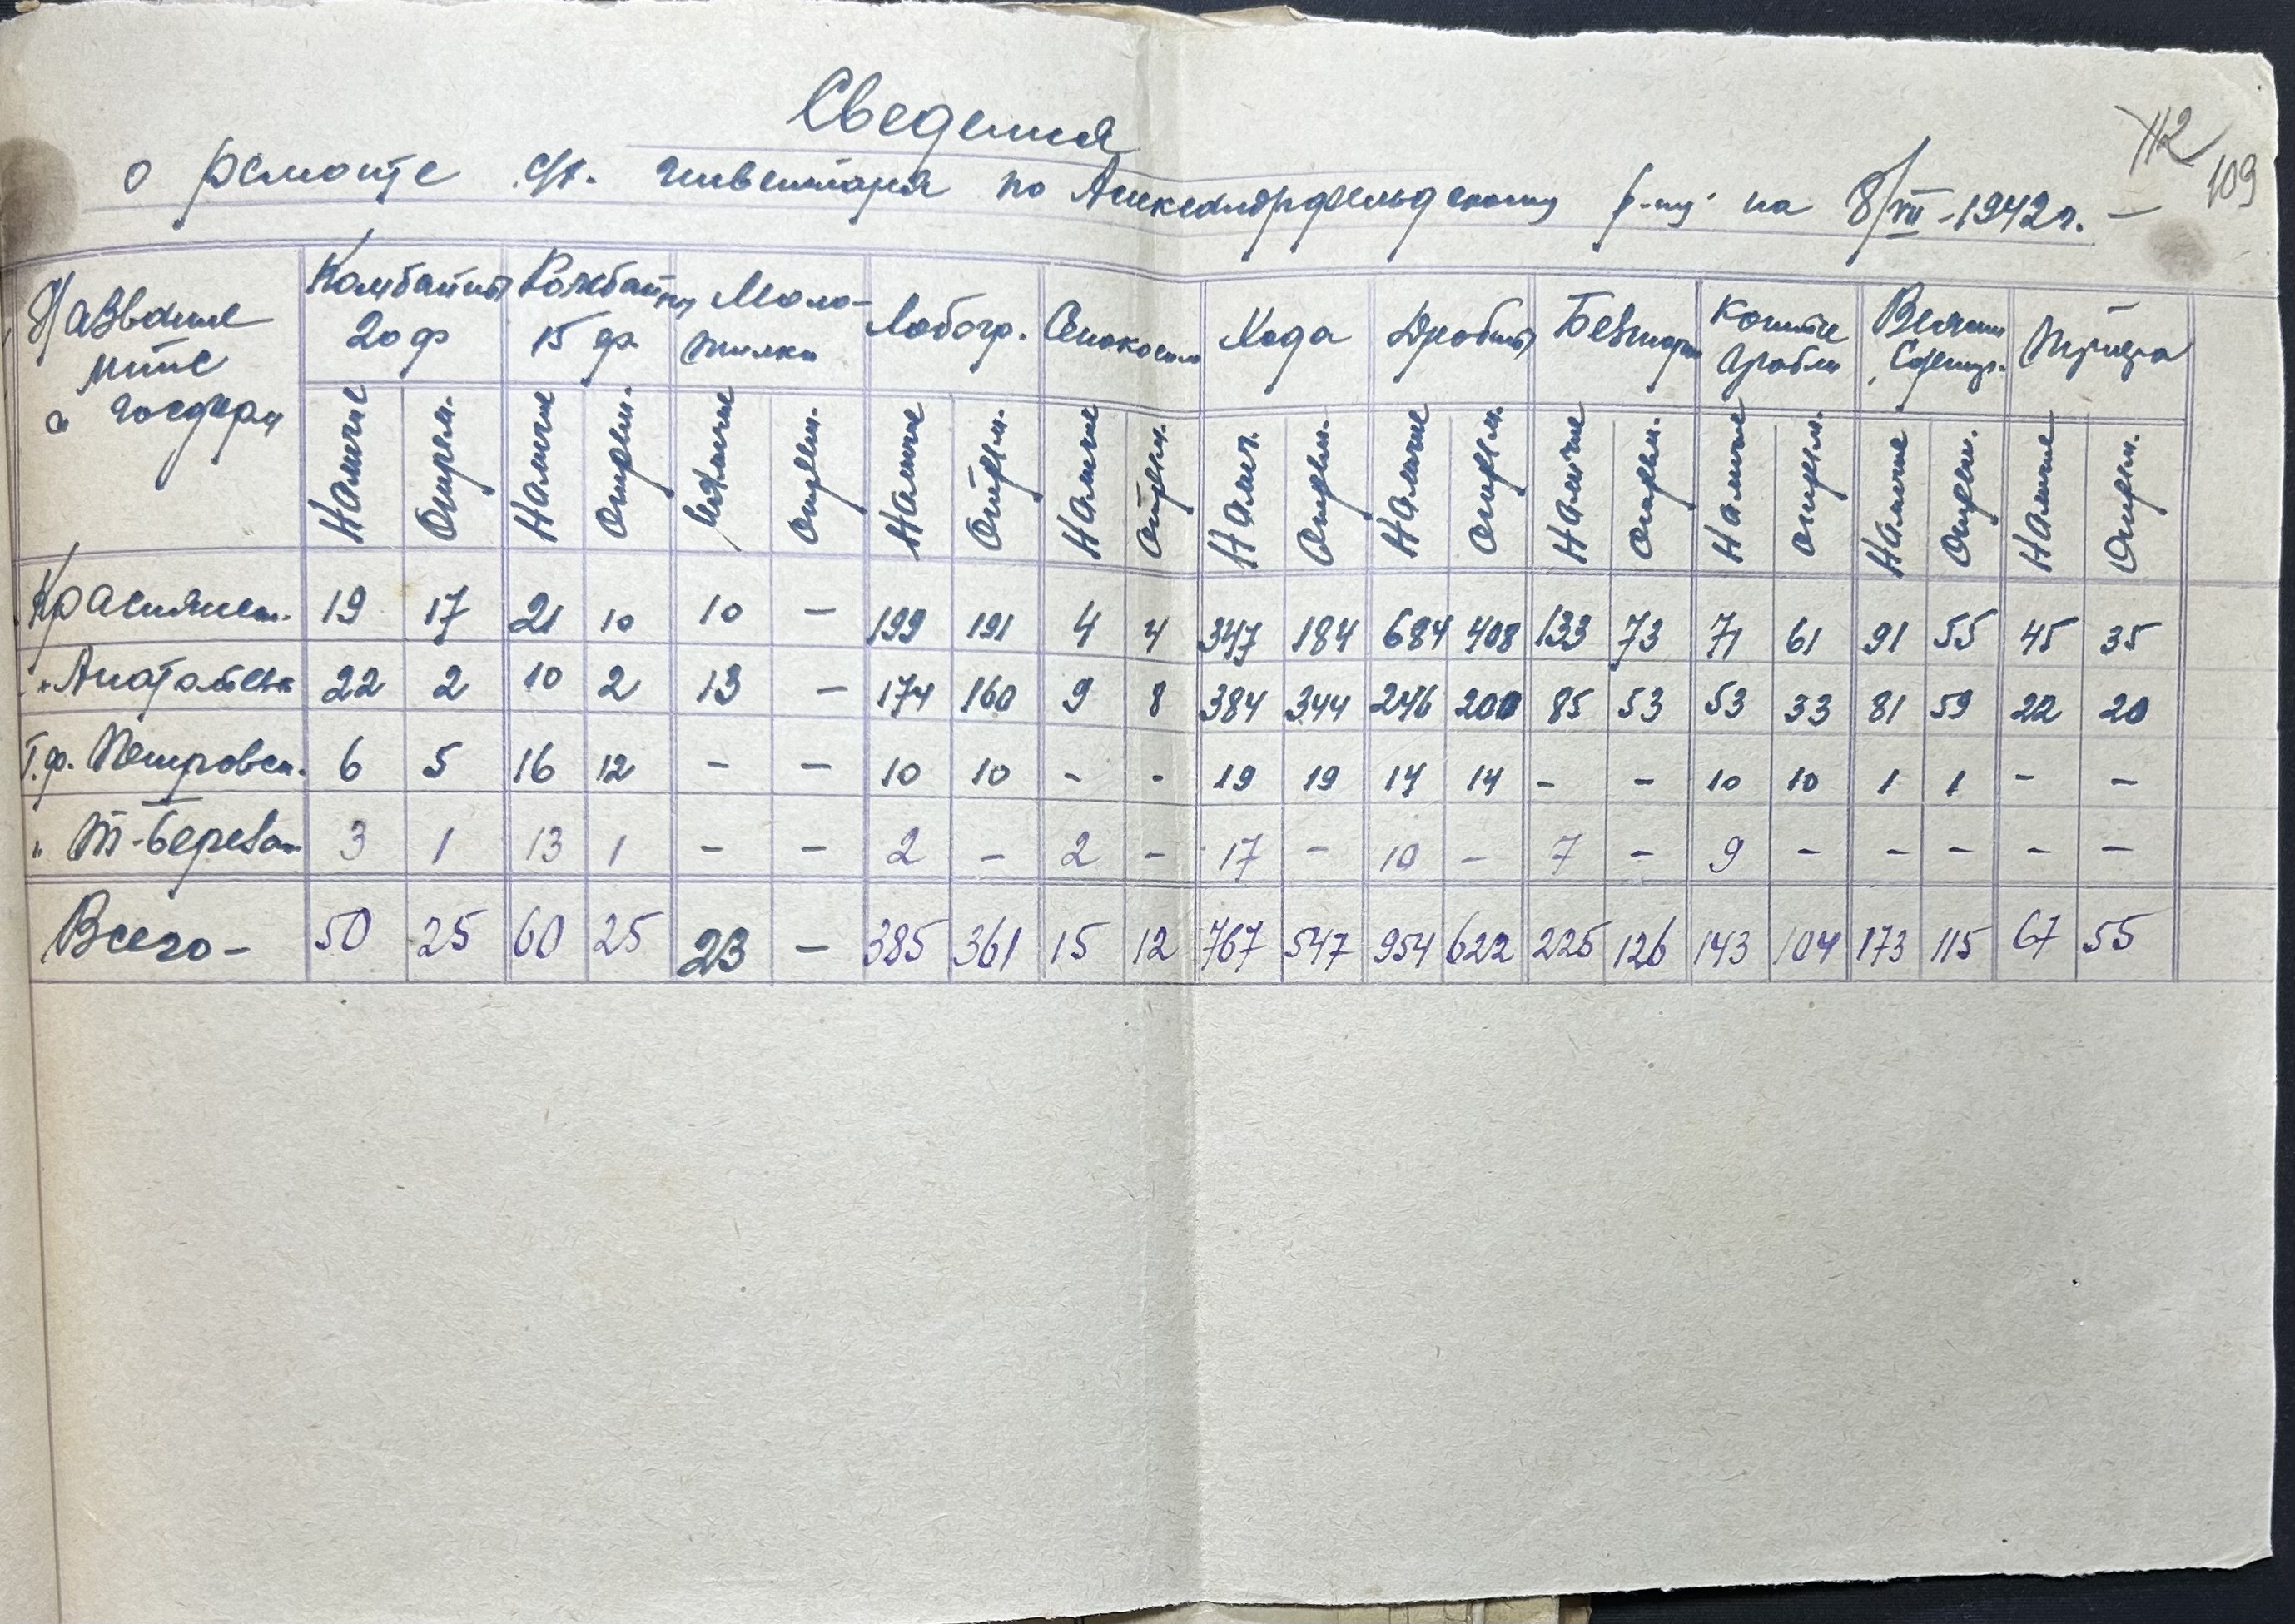 112
109
Сведения
о ремонте с/х. инвентаря по Александрфельдскому р-ну на 8/VII-1942г. –
Название мтс и госферм | Комбайны 20 ф | Комбайны 15 ф. | Моло-тилки | Лобогр. | Сенокосил | Хода | Дробины | Безтарки | Конные грабли | Веялки, Сортир. | Триера
Наличие | Отрем. | Наличие | Отрем. | Наличие | Отрем. | Наличие | Отрем. | Наличие | Отрем. | Налич. | Отрем. | Наличие | Отрем. | Наличие | Отрем. | Наличие | Отрем. | Наличие | Отрем. | Наличие | Отрем.
Краснянск. 19 17 21 10 10 – 199 191 4 4 347 184 684 408 133 73 71 61 91 55 45 35
" Анатольевк 22 2 10 2 13 – 174 160 9 8 384 344 246 200 85 53 53 33 81 59 22 20
Г.ф. Петровск. 6 5 16 12 – – 10 10 – - 19 19 14 14 – – 10 10 1 1 – –
" Т-Березан 3 1 13 1 – – 2 – 2 – 17 – 10 – 7 – 9 – – – – –
Всего – 50 25 60 25 23 – 385 361 15 12 767 547 954 622 225 126 143 104 173 115 67 55